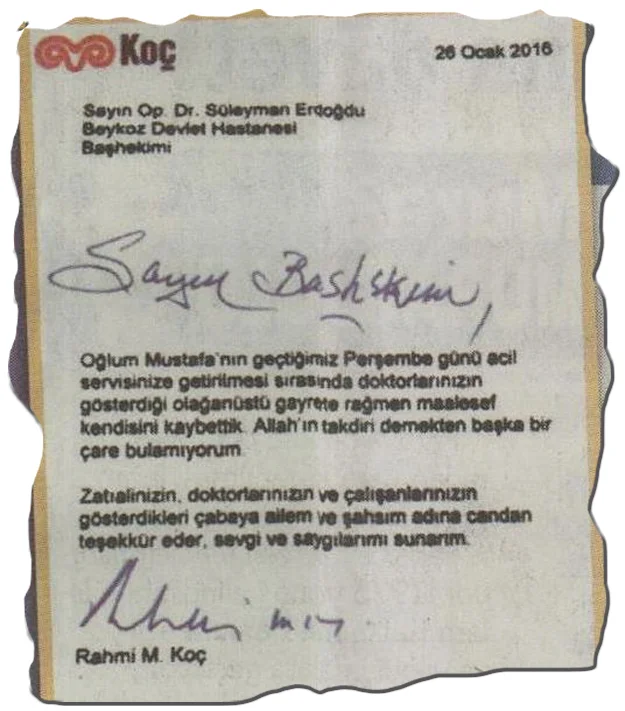 Koç
26 Ocak 2016
Sayın Op. Dr. Süleyman Erdoğdu
Beykoz Devlet Hastanesi
Başhekimi
Sayın Başhekim,
Oğlum Mustafa'nın geçtiğimiz Perşembe günü acil
servisinize getirilmesi sırasında doktorlarınızın
gösterdiği olağanüstü gayrete rağmen maalesef
kendisini kaybettik. Allah'ın takdiri demekten başka bir
çare bulamıyorum
Zatıalinizin, doktorlarınızın ve çalışanlarınızın
gösterdikleri çabaya ailem ve şahsım adına candan
teşekkür eder, sevgi ve saygılarımı sunarım.
Rahmi M. Koç